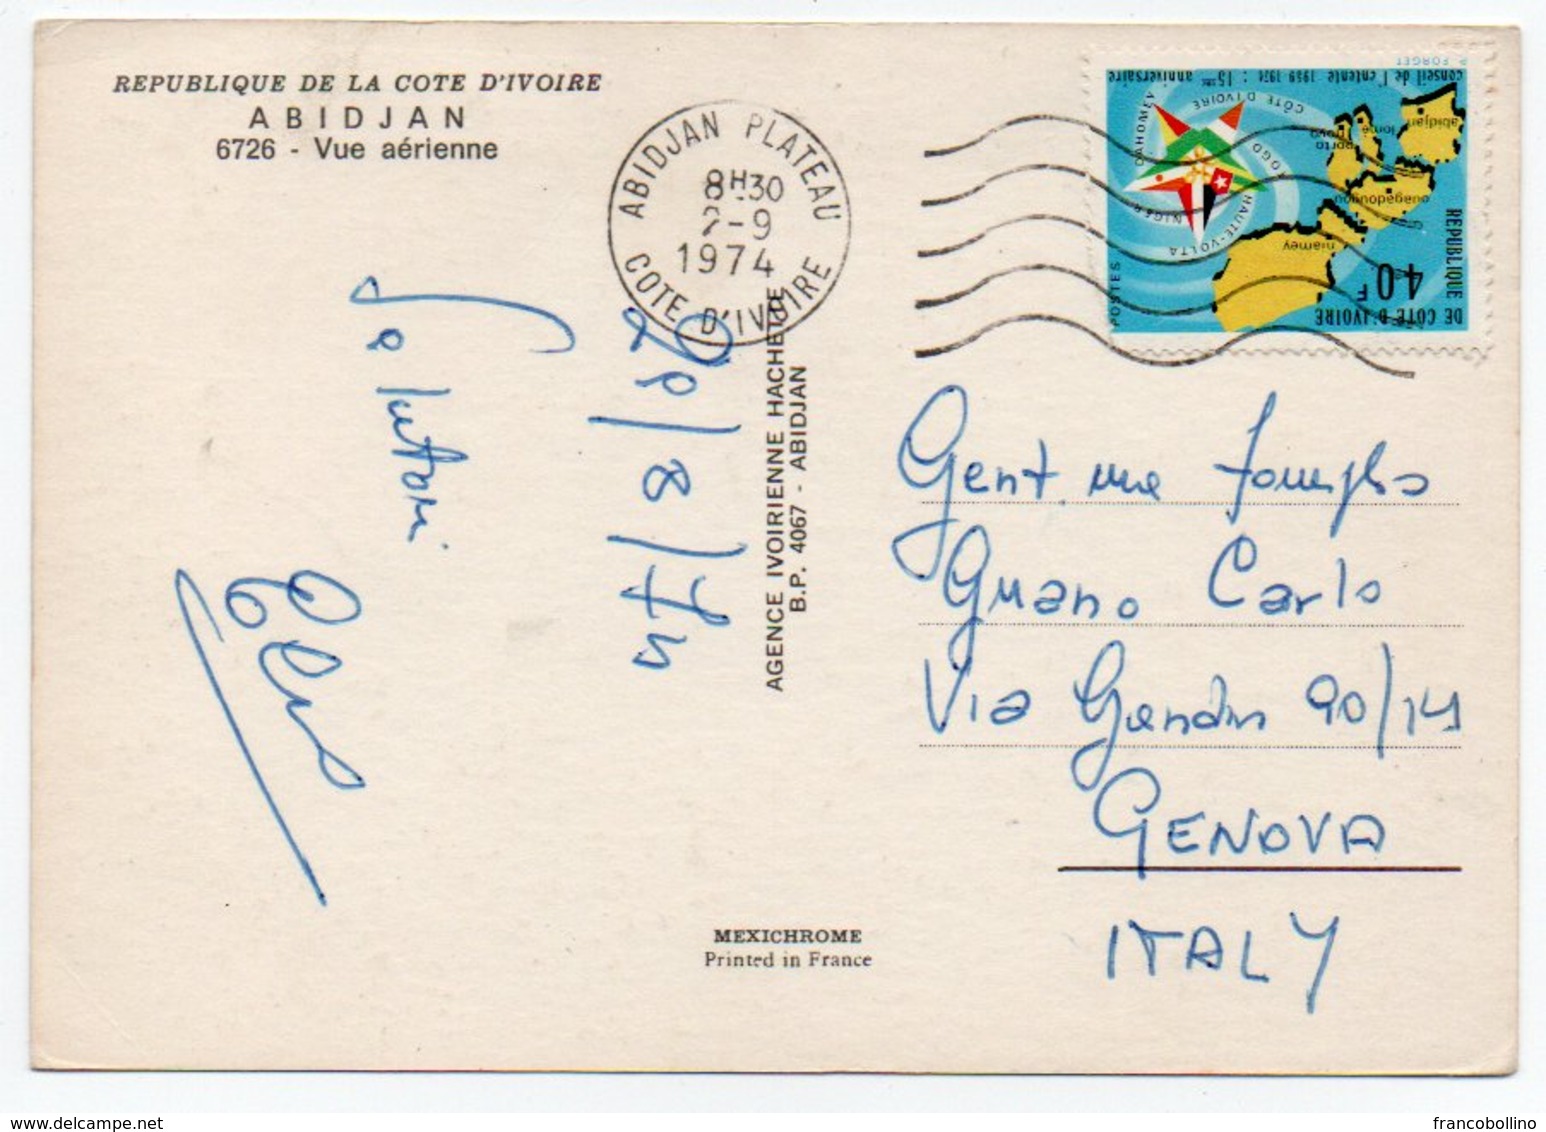 REPUBLIQUE DE LA COTE D'IVOIRE
ABIDJAN
6726 - Vue aérienne
ABIDJAN PLATEAU
8H30
2-9
1974
COTE D'IVOIRE
P. FORGET
conseil de l'entente 1959 1974 : 15ème anniversaire
DAHOMEY
CÔTE D'IVOIRE
TOGO
HAUTE-VOLTA
NIGER
abidjan
lomé
porto
novo
ouagadougou
niamey
POSTES
40F
REPUBLIQUE
DE COTE D'IVOIRE
Salutoni
29/8/74
AGENCE IVOIRIENNE HACHETTE
B.P. 4067 - ABIDJAN
Gent. ma
Guano Carlo
Via 90/14
GENOVA
ITALY
MEXICHROME
Printed in France
francobollino